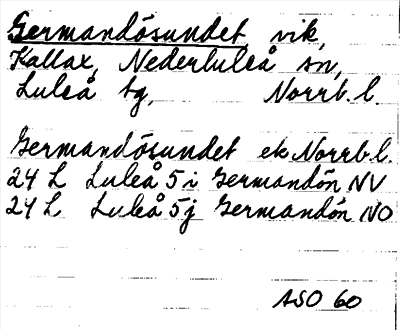 Germandösundet vik,
Kallax, Nederluleå sn,
Luleå tg, Norrb. l.
Germandösundet ek Norrb. l.
24 L Luleå 5 i Germandön NV
24 L Luleå 5 j Germandön NO
ASO 60